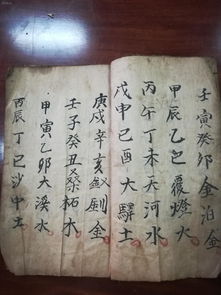 壬寅癸卯金泊金
甲辰乙巳覆燈火
丙午丁未天河水
戊申己酉大驛土
庚戌辛亥釵釧金
壬子癸丑桑柘木
甲寅乙卯大溪水
丙辰丁巳沙中土